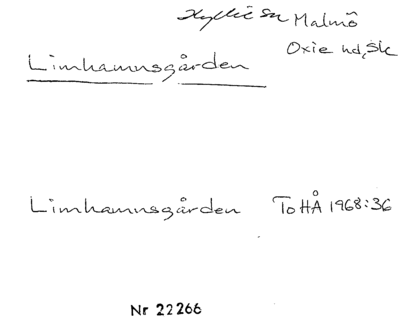 Hyllie sn Malmö
Oxie hd, Sk
Limhamnsgården
Limhamnsgården ToHÅ 1968:36
Nr 22266